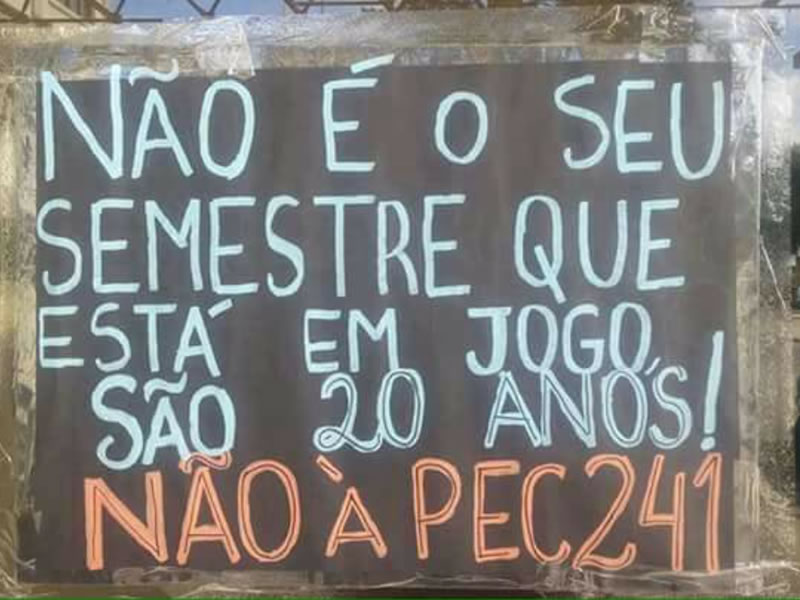 NÃO É O SEU
SEMESTRE QUE
ESTÁ EM JOGO,
SÃO 20 ANOS!
NÃO À PEC241